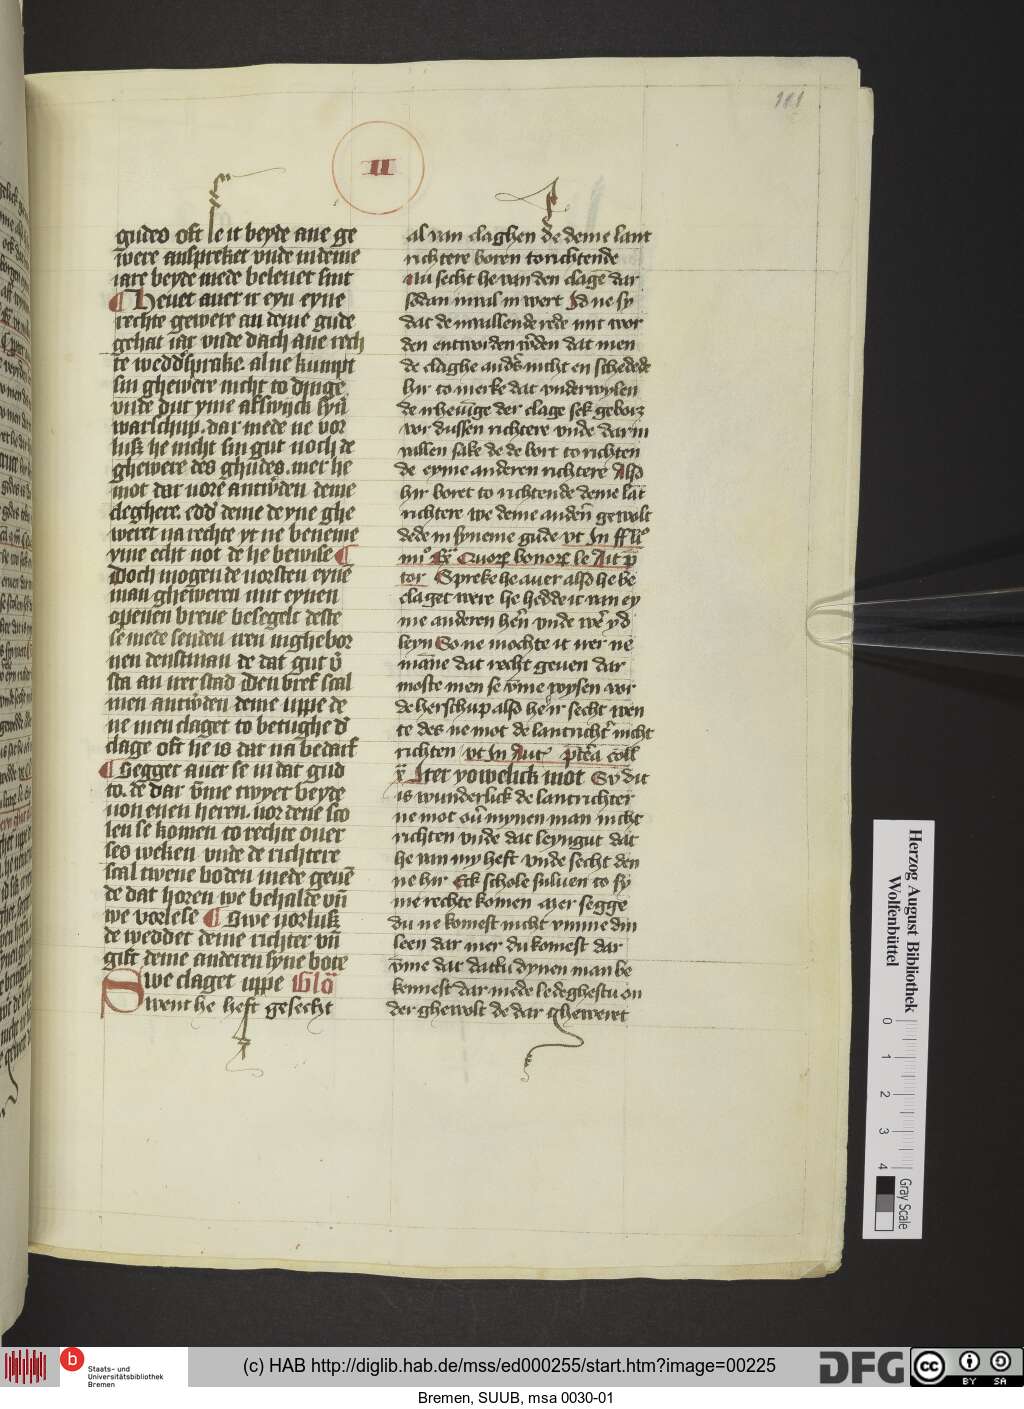 111
II
gudes oft se it beyde ane ge
were anspreket vnde in deme
iare beyde mede beleuet sint
Heuet auer ir eyn eyne
rechte gewere an deme gude
gehat iar vnde dach ane rech
te weddsprake. al ne kumpt
sin ghewere nicht to dinge
vnde dut yme afswijck syn̄
warschup. dar mede ne vor
luß he nicht sin gut noch de
ghewere des ghudes. met he
mot dar vore antwden deme
cleghere. edd deme deyne ghe
weret na rechte yt ne beneme
yme echt not de he bewise
Doch mogen de vorsten eynē
man gheweren mit eynen
openen breue besegelt deste
se mede senden iren inghebor
nen denstman de dat gut v̄
sta an irer stad Den bref scal
men antwden deme uppe de
ne men claget to betughe d'
clage oft hē is dar na bedarf
Segget auer se in dat gud
to. de dar v̄me twyet beyde
von enen heren. vor dene sco
len se komen to rechte ouer
ses weken vnde de richtere
scal twene boden mede geuē
de dat horen we behalde vn̄
we vorlese Swe vorluß
de weddet deme richter vn̄
gift deme anderen syne bote
Swe claget uppe Glō
Swent he heft gesecht
al van claghen de deme lant
richtere boren to richtende
Nu secht he van den clage dar
sodan inual in wert Id ne sy
dat de inuallende rede mit wor
den entworden wden dat men
de claghe ands nicht en schedede
hir to merke dat vnderwylen
de nheuige der clage sek geborz
vor dussen richtere vnde darin
vallen sake de de bort to richten
de eyme anderen richtere Also
hir boret to richtende deme lāt
richtere we deme anden̄ gewolt
dede in syneme gude vt In ff li°
tor Spreke he auer also he be
claget were he hedde it van ey
me anderen hēn vnde we yd
leyn So ne mochte it iver ne
mane dat recht geuen dar
moste men se v̄me wysen vor
de herschup also he ir secht wen
te des ne mot de lantricht nicht
richten vt In Aut
Iter yowelick mot Sy dit
is wunderlick de lantrichter
ne mot ou mynen man nicht
richten vnde dat leyngut dat
he van my heft vnde secht den
ne hir Eck schole suluen to sy
me rechte komen auer segge
du ne komest nicht vmme din
leen dar mer du komest dar
v̄me dat dattu dynen man be
kennest dar mede ledeghestu on
der ghewolt de dar gheweret
Herzog August Bibliothek
Wolfenbüttel
0 1 2 3 4
Gray Scale
b Staats- und
Universitätsbibliothek
Bremen
(c) HAB http://diglib.hab.de/mss/ed000255/start.htm?image=00225
DFG
cc BY SA
Bremen, SUUB, msa 0030-01